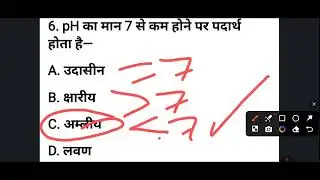 6. pH का मान 7 से कम होने पर पदार्थ
होता है—
A. उदासीन = 7
B. क्षारीय > 7
C. अम्लीय < 7
D. लवण